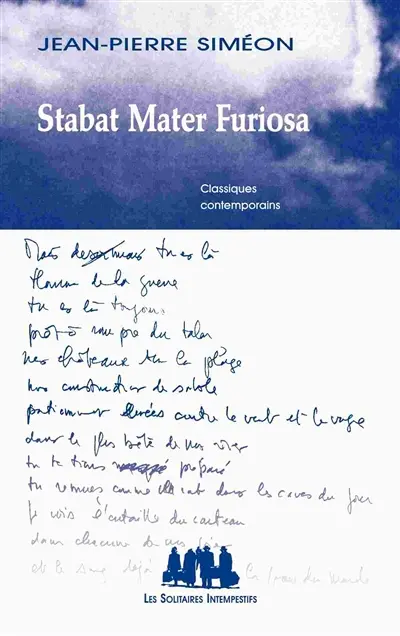 JEAN-PIERRE SIMÉON
Stabat Mater Furiosa
Classiques
contemporains
Mais désormais tu es là
Homme de la guerre
tu es là toujours
prêt à du talon
nos châteaux sur la plage
nos de sable
patiemment contre le vent et la vague
dans le plus de nos
tu te tiens préparé
tu remues comme rat dans les caves du jour
Je vois l'entaille du couteau
dans chacune de nos
et le sang déjà
LES SOLITAIRES INTEMPESTIFS